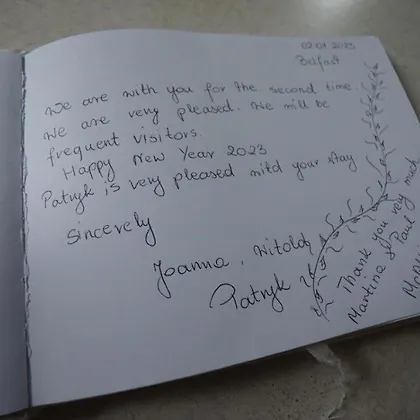 02.01.2023
Belfast
We are with you for the second time.
We are very pleased. We will be
frequent visitors.
Happy New Year 2023
Patryk is very pleased mitd your stay
Sincerely
Joanna, Witold,
Patryk
Thank you very much
Martina & Paul